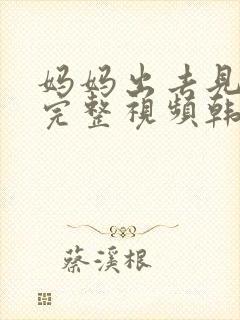 妈妈出去见
完整視頻韩
蔡溪根